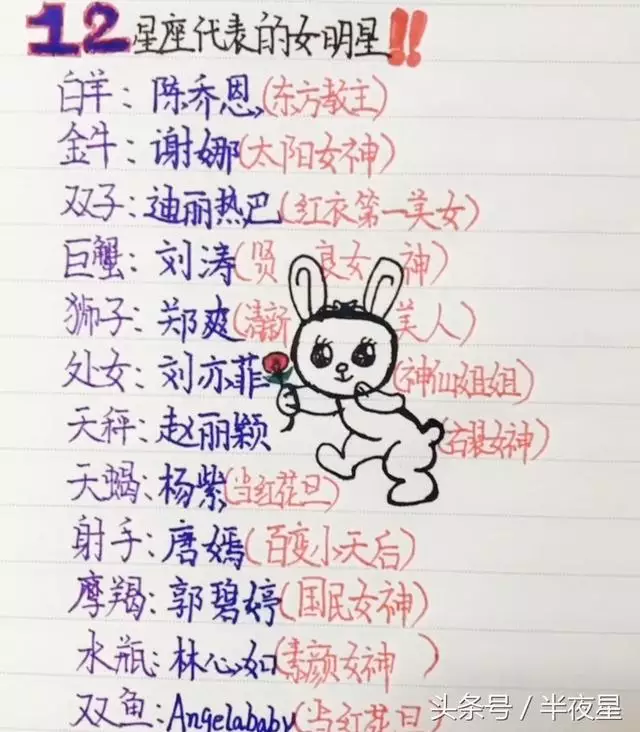 12星座代表的女明星!!
白羊：陈乔恩(东方教主)
金牛：谢娜(太阳女神)
双子：迪丽热巴(红衣第一美女)
巨蟹：刘涛(贤良女神)
狮子：郑爽(清新美人)
处女：刘亦菲(神仙姐姐)
天秤：赵丽颖(古装女神)
天蝎：杨紫(当红花旦)
射手：唐嫣(百变小天后)
摩羯：郭碧婷(国民女神)
水瓶：林心如(素颜女神)
双鱼：Angelababy(当红花旦)
头条号 / 半夜星